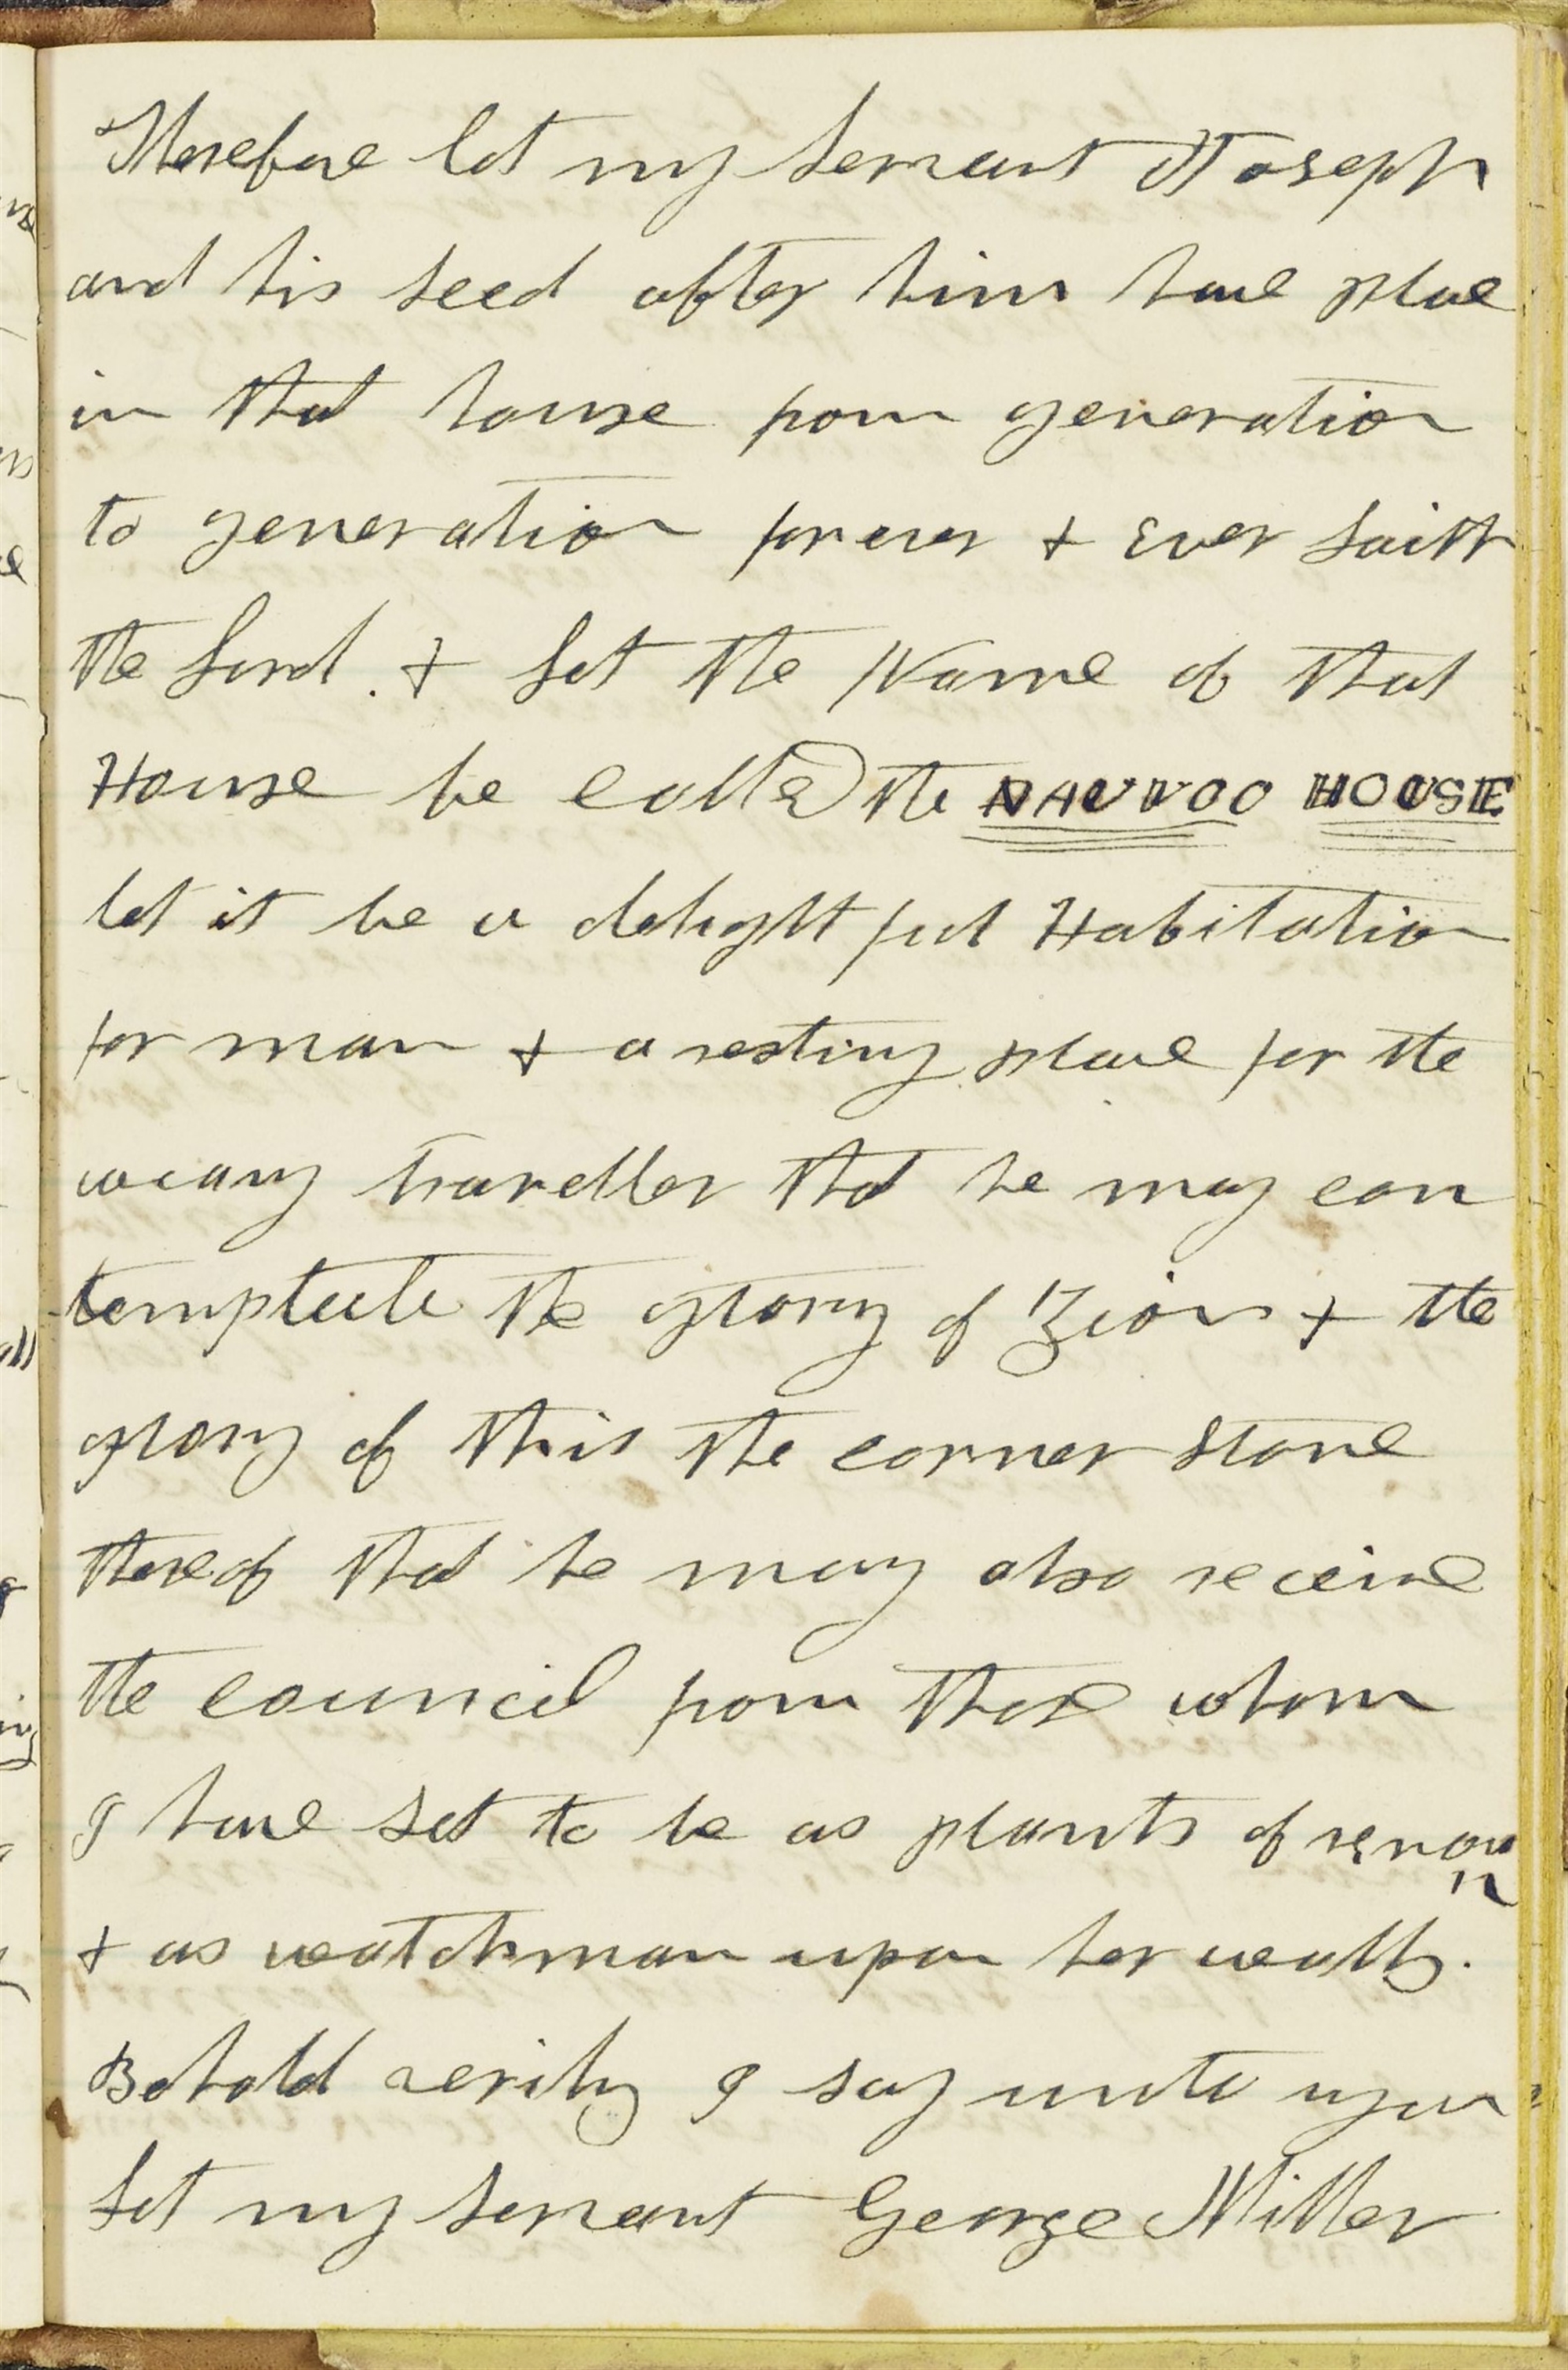 Therefore let my servant Joseph
and his seed after him have place
in that house from generation
to generation forever & Ever Saith
the Lord. & Let the Name of that
House be called the NAUVOO HOUSE
let it be a delightful Habitation
for man & a resting place for the
weary traveller that he may con
template the glory of Zion & the
glory of this the corner Stone
thereof that he may also receive
the council from those whom
I have set to be as plants of renow
n
& as watchman upon her walls.
Behold verily I say unto you
Let my servant George Miller